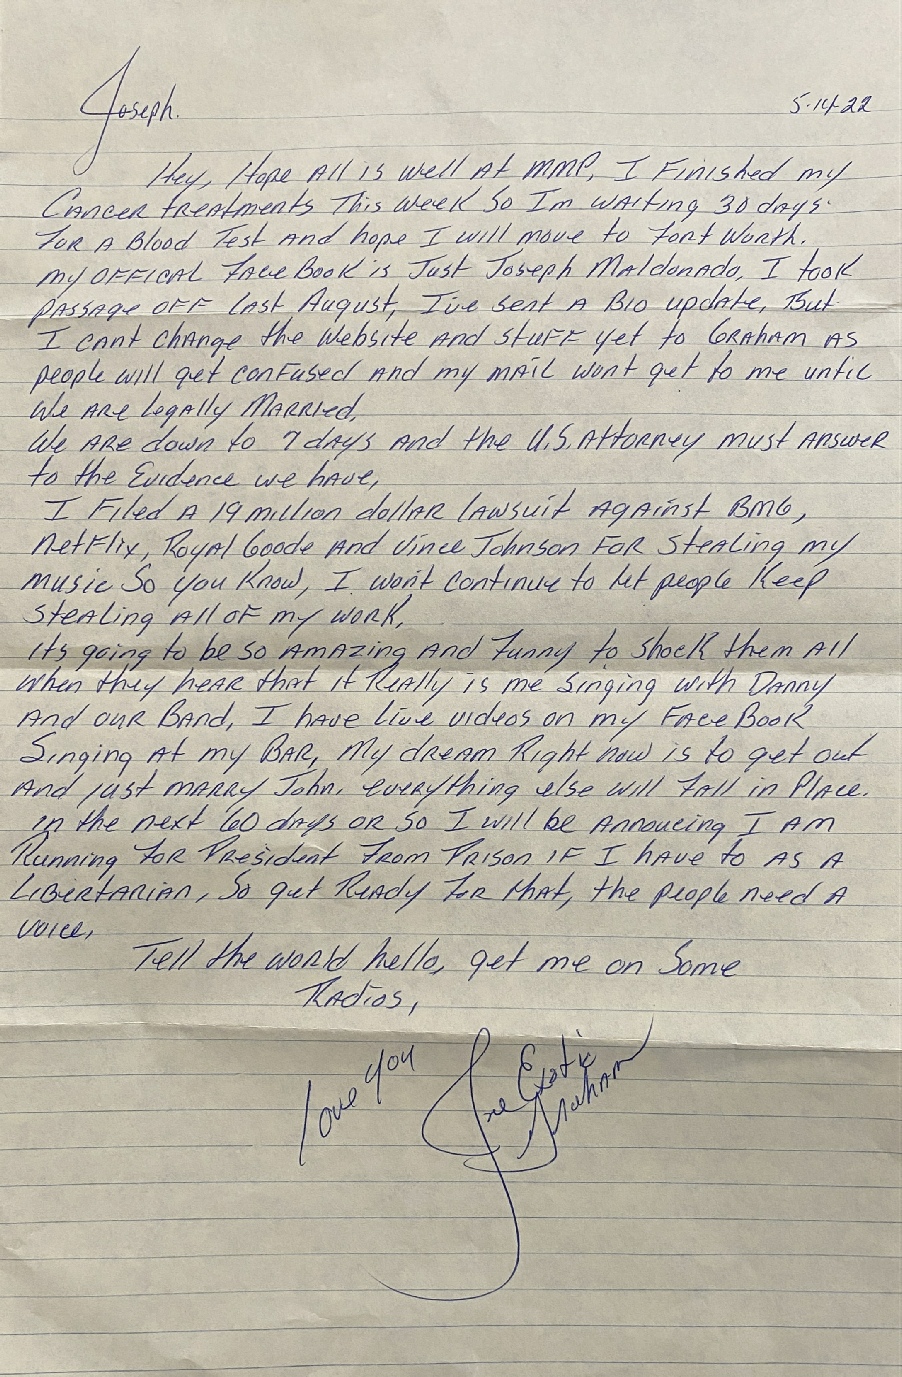 Joseph.
5-14-22
Hey, Hope All is well At MMP, I Finished my
Cancer treatments This Week So Im waiting 30 days
For A Blood Test And hope I will move to Fort Worth.
my OFFICAL FaceBook is Just Joseph Maldonado, I took
Passage OFF last August, I've sent A Bio update, But
I cant change the Website And stuff yet to GRAHAM AS
people will get confused And my MAil wont get to me until
We Are legally Married,
We Are down to 7 days And the U.S. Attorney must Answer
to the Evidence we have,
I Filed A 19 million dollar lawsuit Against BMG,
NetFlix, Royal Goode And Vince Johnson For Stealing my
music So you Know, I won't continue to let people Keep
Stealing All of my work,
its going to be so AMAzing And Funny to shock them All
When they hear that it Really is me Singing with Danny
And our Band, I have live videos on my FaceBook
Singing At my BAR, My dream Right now is to get out
And just marry John. everything else will Fall in Place.
in the next 60 days or so I will be Annoucing I Am
Running For President From Prison if I have to As A
Libertarian, So get Ready For that, the people need A
voice,
Tell the world hello, get me on Some
Radios,
love you
Joe Exotic
Graham